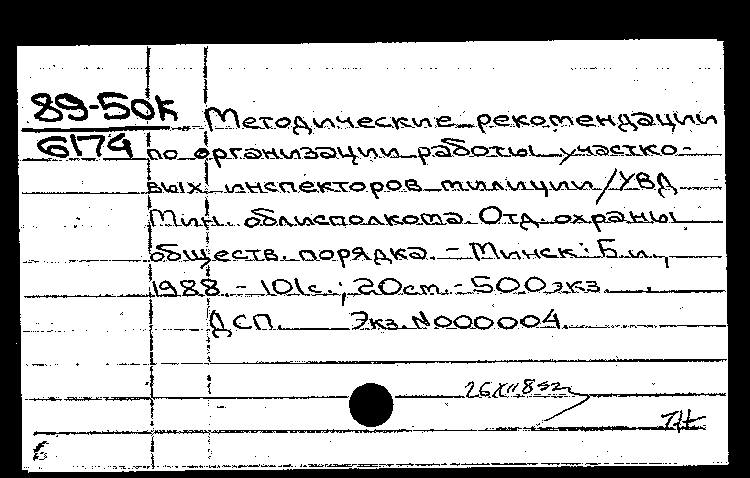 89-50к Методические рекомендации
6174 по организации работы участко-
вых инспекторов милиции/УВД
Мин. облисполкома. Отд. охраны
обществ. порядка. - Минск: Б.и.,
1988. - 101с.; 20см. - 500экз.
ДСП. Экз. №000004.
б